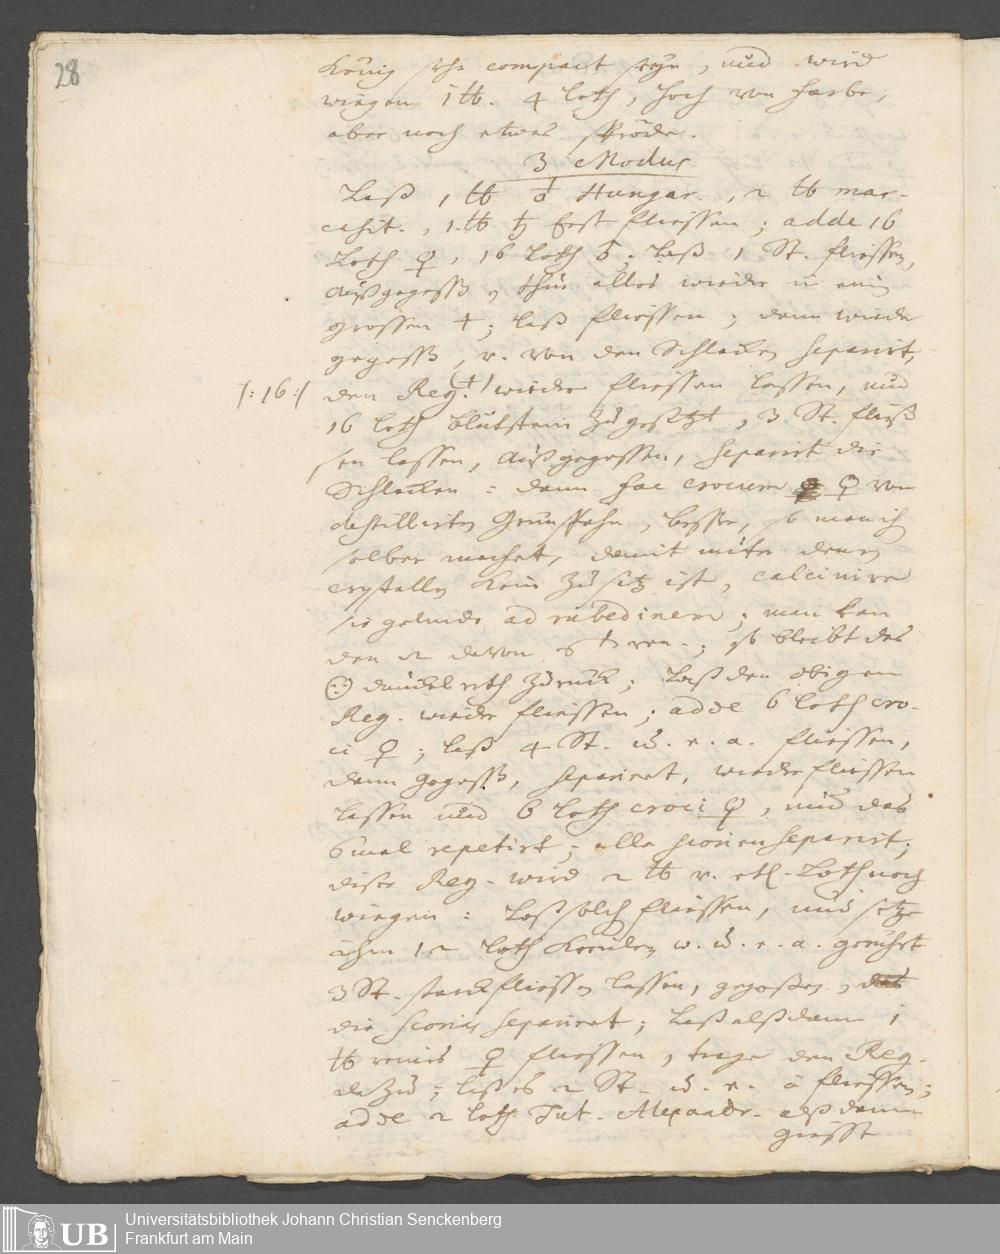 28
König sehr compact seyn, und wird
wiegen 1 ℔. 4 loth, hoch von farbe,
aber noch etwas spröde.
3 Modus
Laß 1 ℔ ♁ Hungar., 2 ℔ mar-
casit., 1 ℔ ♄ erst fliessen; adde 16
Loth ♀, 16 Loth; Laß 1 St. fliessen,
außgegosß thue alles wieder in ein
grossen ✝; laß fliessen; dann wieder
gegosß, v. von den Schlacken separirt,
/: 16 :/
den Reg. wieder fliessen lassen, und
16 loth blutstein zugesetzt, 3 St. flies-
sen lassen, außgegossen, separirt die
Schlacken: dann fac crocum ♀ von
destillirten Grünspahn, besser, so man ihn
selber machet, damit unter denen
crystallen kein zusatz ist, calcinire
sie gelinde ad rubedinem; man kan
den davon; so bleibt das
dunckel roth zurück; Laß den obigen
Reg. wieder fliessen; adde 6 loth cro-
ci ♀; laß 4 St. fliessen,
dann gegosß, separirt, wieder fliessen
lassen und 6 loth croci ♀, und das
6 mal repetirt; alle scorien separirt;
diser Reg. wird 2 ℔ v. etl. Loth noch
wiegen: Laß solch fliessen, und setze
ihm 12 loth gerührt
3 St. starck fliessen lassen, gegossen, 
die scorias separirt; Laß alßdann 1
℔ reines ♀ fliessen, trage den Reg.
dazu; laß es 2 St. fliessen;
adde 2 loth Tut. Alexandr. alßdann
giesse
Universitätsbibliothek Johann Christian Senckenberg
Frankfurt am Main
UB